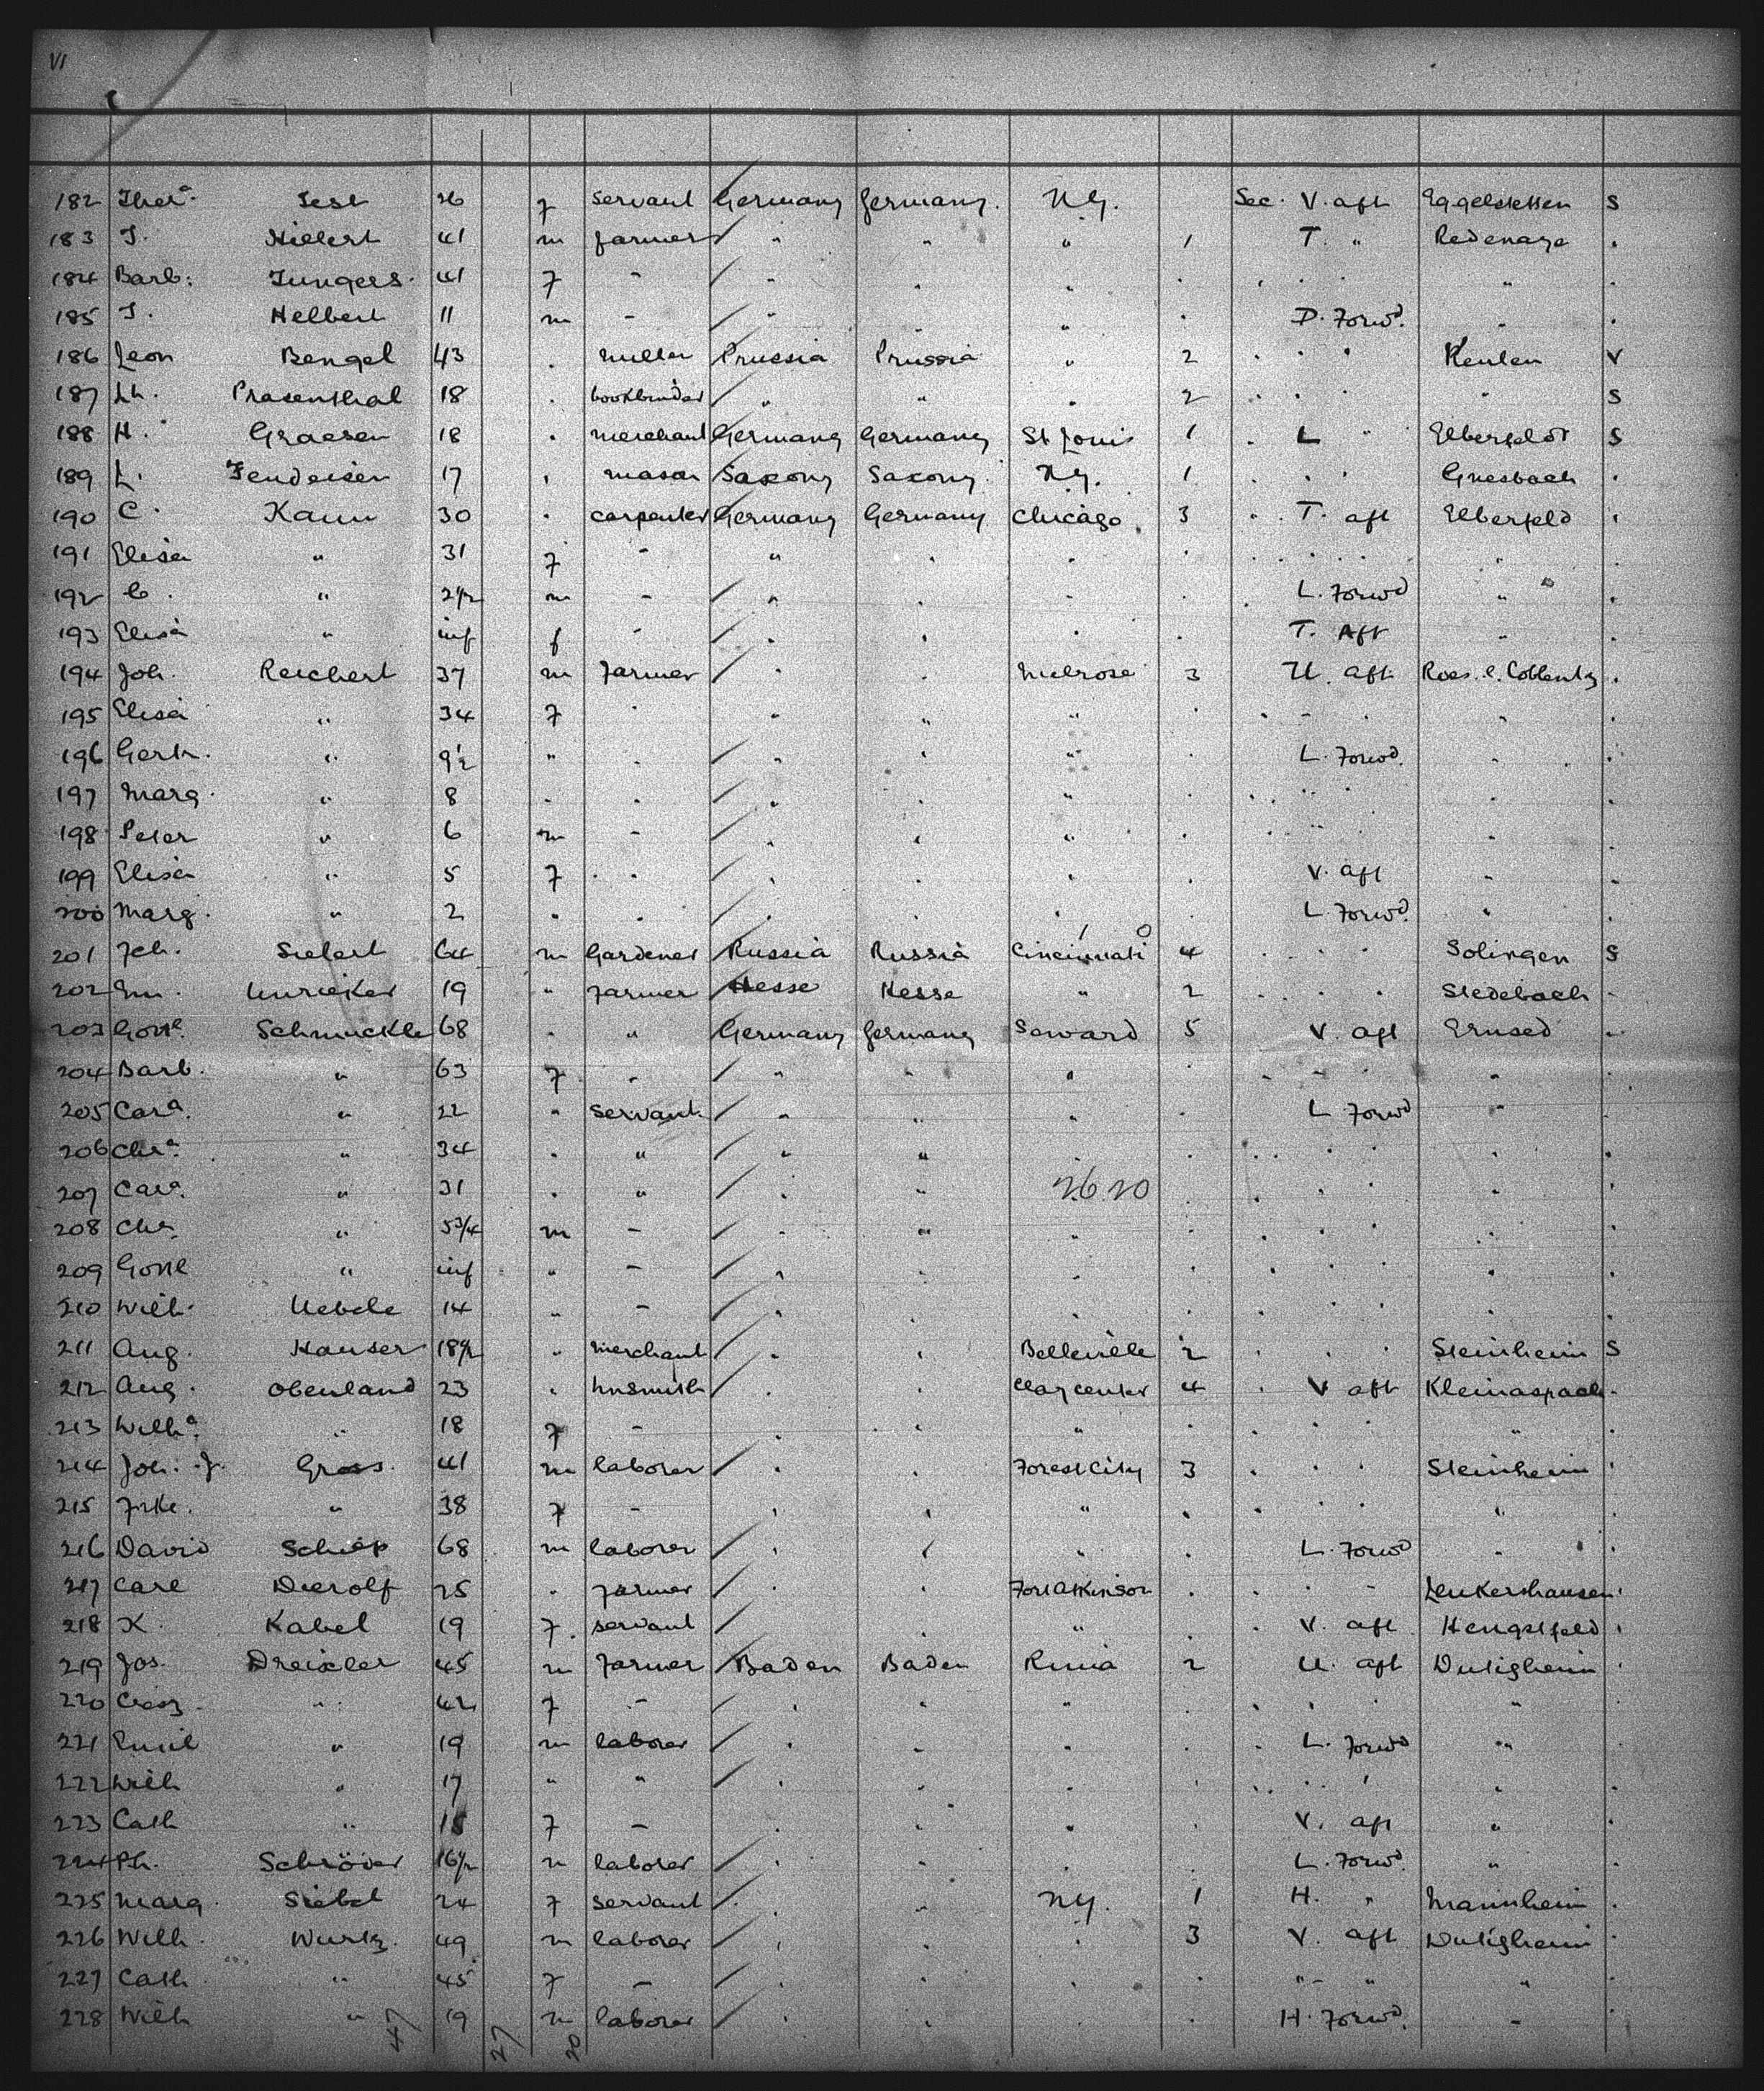 VI
182 Ther.a Sest 26 f servant Germany Germany. N.Y. Sec. V. aft Eggelstetten S
183 J. Hilbert 41 m farmer " " " 1 T. " Redenage .
184 Barb. Jungers. 41 f - " " " . . . . " .
185 J. Helbert 11 m - " " " . D. Forwd. " .
186 Leon Bengel 43 . miller Prussia Prussia " 2 . . . Keulen V
187 Lh. Prasenthal 18 . bookbinder " " " 2 . . . " S
188 H. Graesen 18 . merchant Germany Germany St Louis 1 . L " Elberfeld S
189 L. Fendeisen 17 . mason Saxony Saxony N.Y. 1 . . . Griesbach .
190 C. Kaun 30 . carpenter Germany Germany Chicago 3 . T. aft Elberfeld .
191 Elisa " 31 f - " . . . . . . . " .
192 C. " 2 1/2 m - " . . . . L. Forwd " .
193 Elisa " inf f - . . . . T. Aft " .
194 Joh. Reichert 37 m farmer . . Melrose 3 U. aft Roes. C. Coblentz .
195 Elisa " 34 f . " " " . . - . " .
196 Gertr. " 9 1/2 " . . . " . L. Forwd. . .
197 Marg. " 8 . . . . " . . . . . .
198 Peter " 6 m - . . " . . . " .
199 Elisa " 5 f . . . . . . V. aft " .
200 Marg. " 2 . . . . . . L. Forwd. " .
201 Joh. Siebert 64 m Gardener Russia Russia Cincinnati 4 . . . Solingen S
202 Em. 19 " farmer Hesse Hesse " 2 . . . . Stedebach -
203 Gottl. Schmuckle 68 . " Germany Germany Saward 5 V. aft -
204 Barb. " 63 f - " " " . . - . " .
205 Cara. " 22 " servant " " " . L. Forwd " .
206 Chra. " 34 . " " " . . . . . . . .
207 Cara. " 31 . " . " 2620 . . . . " .
208 Chr. " 5 3/4 m - . " " . . . . " .
209 Gottl " inf " - . . . . . . . . .
210 Wilh. Uebele 14 " - . . . . . . . . .
211 Aug. Hauser 18 1/2 " merchant . . Belleville 2 . . . Steinheim S
212 Aug. Obenland 23 . . . Clay Center 4 . V aft Kleinaspach -
213 Wilha. " 18 f - . . " . . . . " .
214 Joh. J. Gross. 41 m laborer . . Forest City 3 . . . Steinheim .
215 Frke. " 38 f - . . " . . . . " .
216 David 68 m laborer . . " . L. Forwd " .
217 Carl Dierolf 25 . farmer . . Fort Atkinson . . . - Leukershausen .
218 K. Kabel 19 f. servant . . " . . V. aft Hengstfeld .
219 Jos. Dreixler 45 m farmer Baden Baden 2 U. aft .
220 " 42 f - . " " . . . . " .
221 Emil " 19 m laborer . . . . . L. Forwd "
222 Wilh " 17 " " . . . . . . . " .
223 Cath " 15 f - . . . . V. aft " .
224 Ph. Schröder 16 1/2 m laborer . . . . L. Forwd. " .
225 Marg. Siebel 24 f servant . . N.Y. 1 H. " Mannheim .
226 Wilh. Wurtz. 49 m laborer . . . 3 V. aft .
227 Cath " 45 f - . . . . " - " " .
228 Wilh " 19 m laborer . . . . H. Forwd. - .
47 27 20